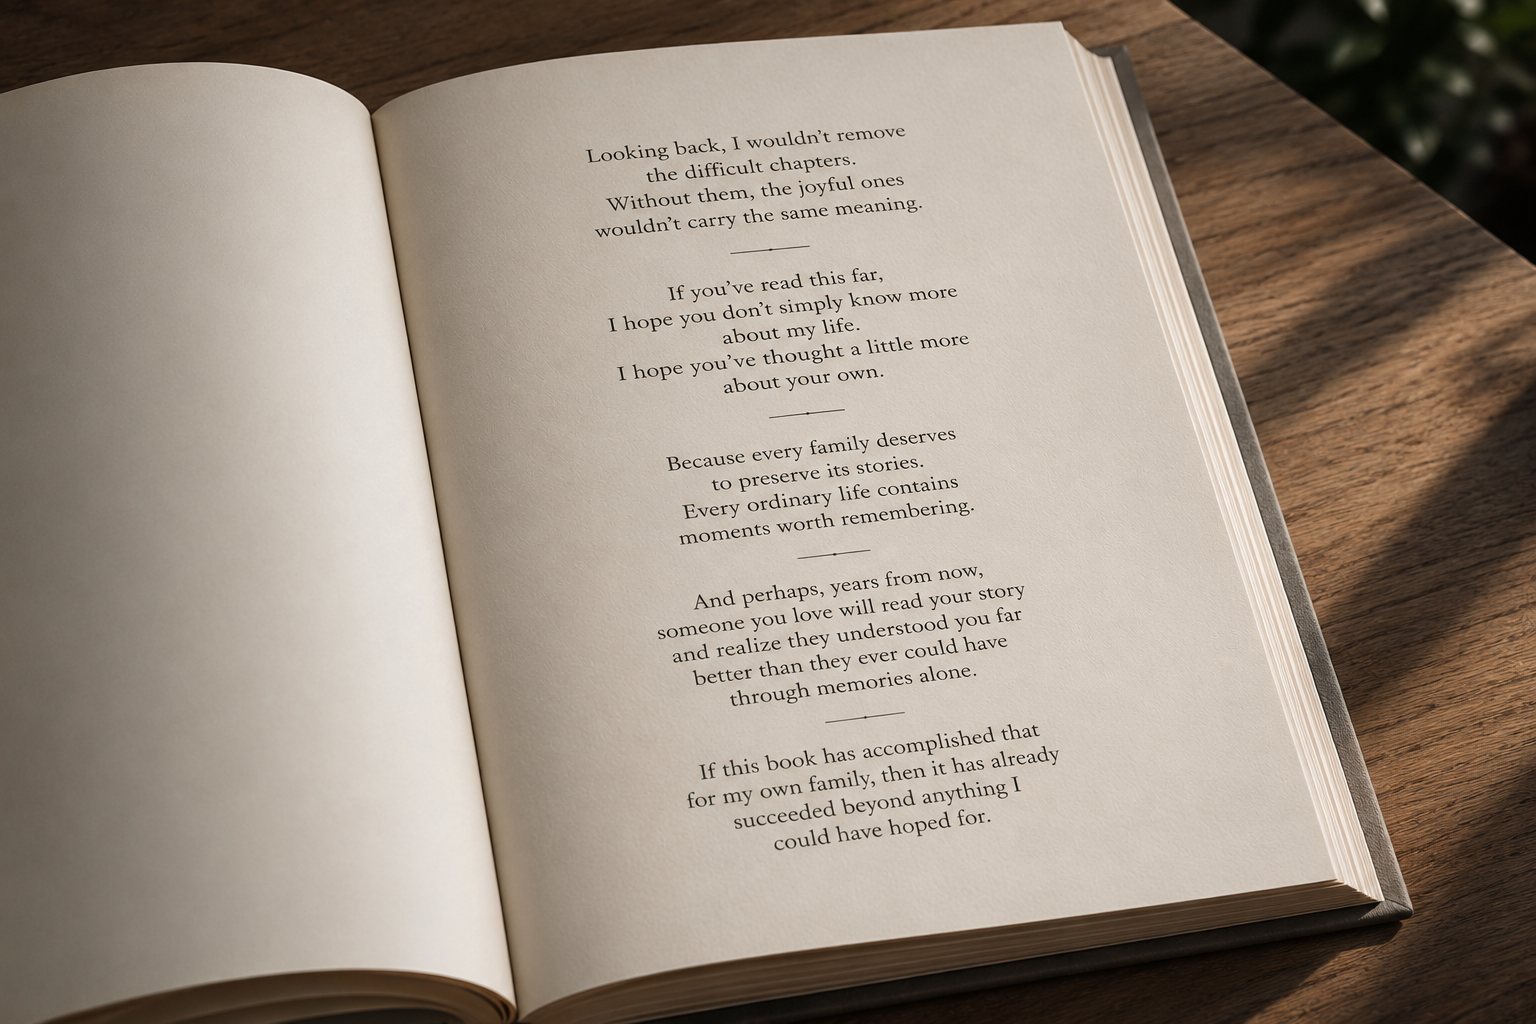 Looking back, I wouldn’t remove
the difficult chapters.
Without them, the joyful ones
wouldn’t carry the same meaning.
If you’ve read this far,
I hope you don’t simply know more
about my life.
I hope you’ve thought a little more
about your own.
Because every family deserves
to preserve its stories.
Every ordinary life contains
moments worth remembering.
And perhaps, years from now,
someone you love will read your story
and realize they understood you far
better than they ever could have
through memories alone.
If this book has accomplished that
for my own family, then it has already
succeeded beyond anything I
could have hoped for.